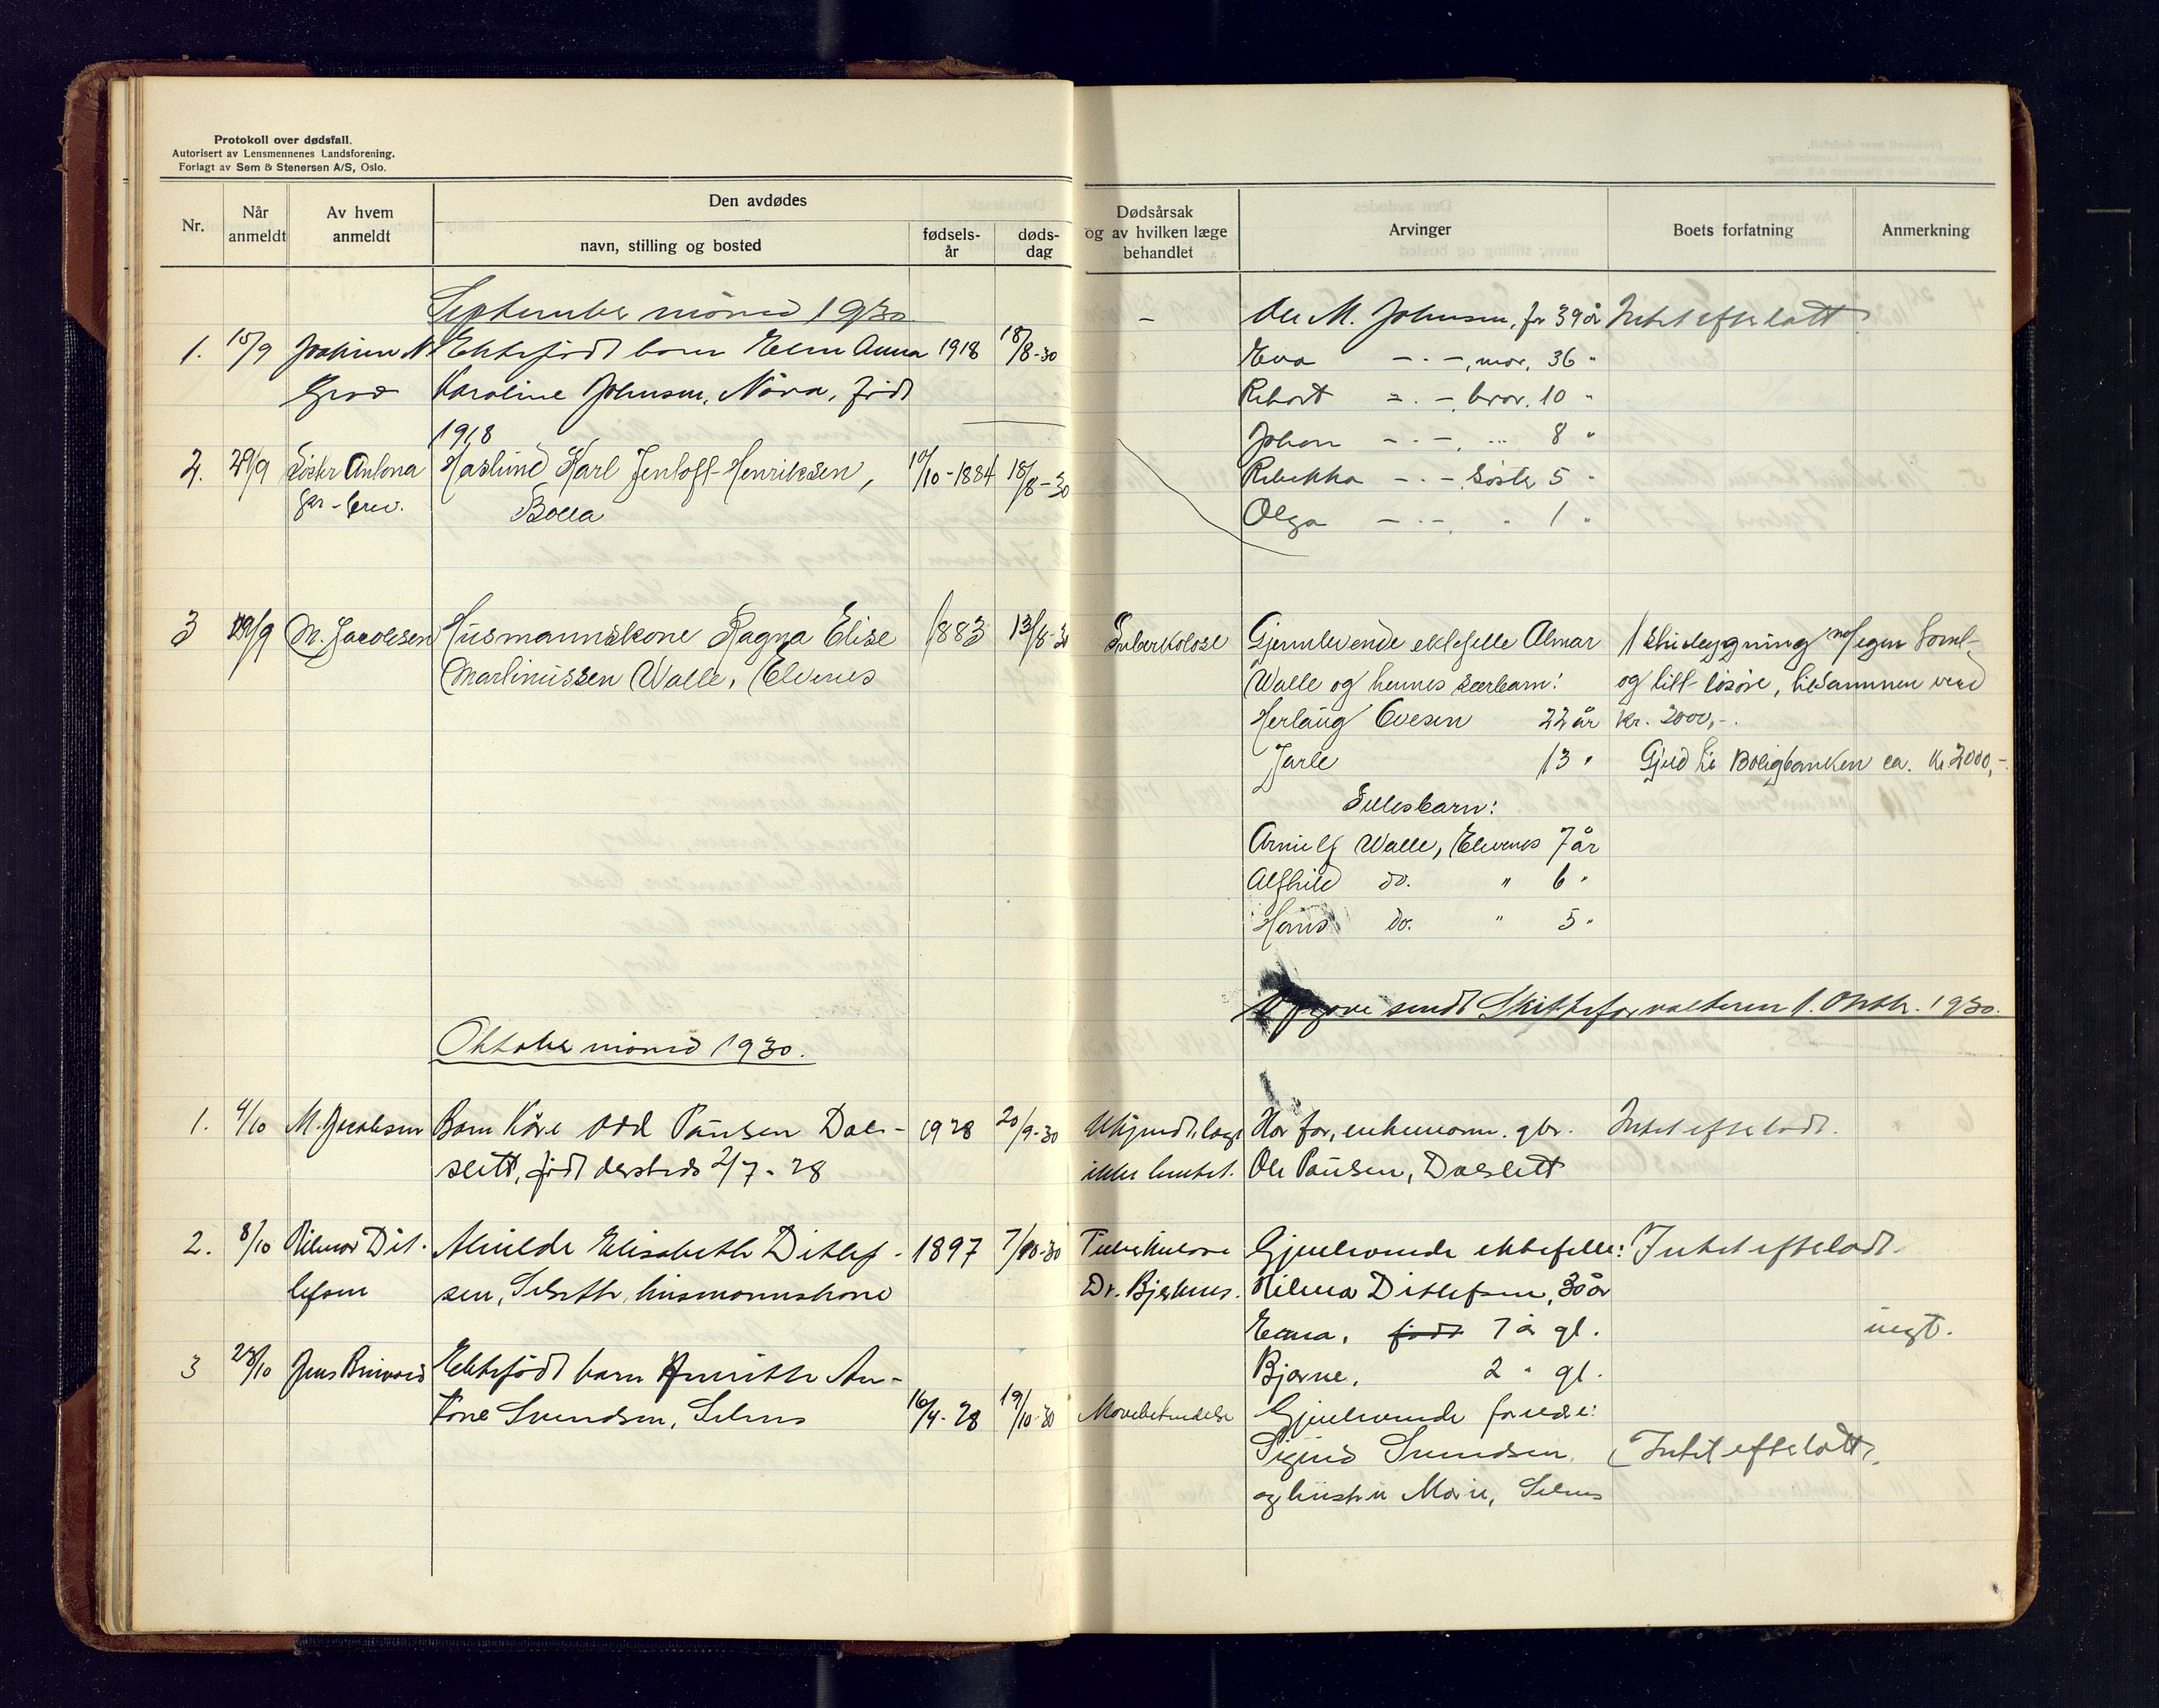 Protokoll over dødsfall.
Autorisert av Lensmennenes Landsforening.
Forlagt av Sem & Stenersen A/S, Oslo.
Nr.
Når anmeldt
Av hvem anmeldt
Den avdødes
navn, stilling og bosted
fødsels-år
døds-dag
Dødsårsak og av hvilken læge behandlet
Arvinger
Boets forfatning
Anmerkning
September måned 1930
1. 15/9 Joakim N. Ektefødt barn Anna 1918 18/8-30 – Ole M. Johnsen, far 39 år Intet efterlatt
Karoline Johnsen, født Eva – " –, mor, 36 "
1918 – " –, bror, 10 "
Johan – " – 8 "
2. 29/9 Søster Antona Haslund Karl Jentoft Henriksen, 10/10-1884 18/8-30 Rebekka – " – Søster 5 "
gr. brev. Bolla Olga – " – " 1 "
3 29/9 M. Jacobsen Husmannskone Ragna Elise 1883 13/8-30 Tuberkolose Gjenlevende ektefelle Almar 1 husbygning m/ egen tomt
Martinussen Walle, Elvenes Walle og hennes særbarn: og litt løsøre, tilsammen verd
Herlaug Ovesen 22 år kr. 3000,-.
Jarle 13 " Gjeld til Boligbanken ca. kr 2000,-
Fellesbarn:
Arnulf Walle, Elvenes 7 år
Alfhild do. " 6 "
Hans do. " 5 "
Opgave sendt Skifteforvalteren 1. Oktbr. 1930.
Oktober måned 1930.
1. 4/10 M. Jacobsen Barn Kåre Odd Paulsen Dal- 1928 20/9-30 Ukjendt, læge Har far, enkemann. gbr. Intet efterladt.
slett, født dersteds 2/7-28 ikke hentet. Ole Paulsen, Dalslett
2. 8/10 Hilmar Dit- Alvilde Elisabeth Ditlef- 1897 7/10-30 Tuberkulose Gjenlevende ektefelle: Intet efterladt.
lefsen sen, husmannskone Dr. Hilmar Ditlefsen, 30 år
født 7 år gl. ingt.
Bjarne, 2 " gl.
3 28/10 Jens Ektefødt barn An-
tone Svendsen, Selnes 16/4-28 19/10-30 Mavebetendelse Gjenlevende foreldre:
Sigurd Svendsen Intet efterlatt.
og hustru Marie, Selnes